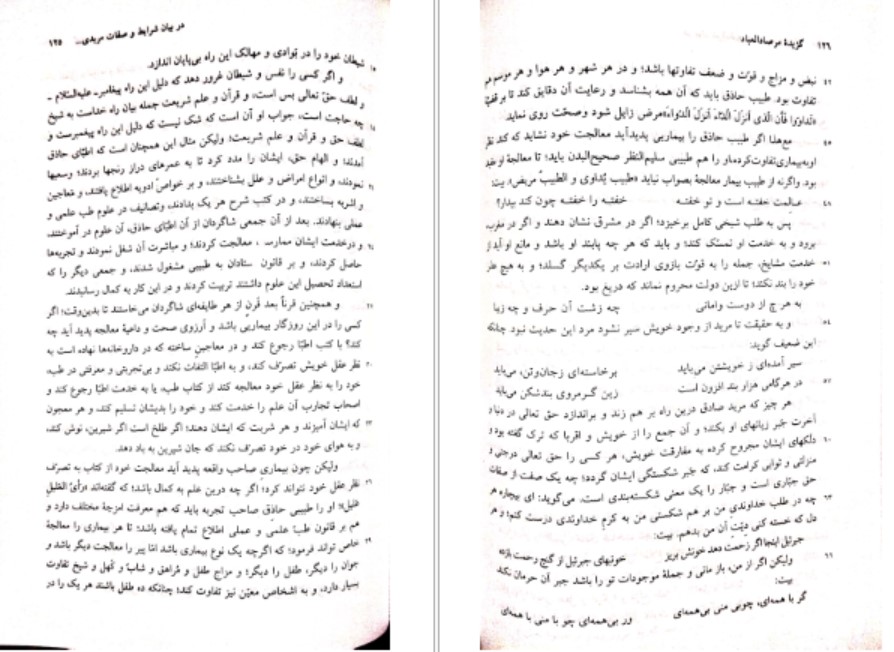 در بیان شرایط و صفات مریدی... ۱۲۵
شیطان خود را در بوادی و مهالک این راه بی‌پایان اندازد. ۱۵
و اگر کسی را نفس و شیطان غرور دهد که دلیل این راه پیغامبر ـ علیه‌السلام ـ
و لطف حق تعالی بس است، و قرآن و علم شریعت جمله بیان راه خداست به شیخ
چه حاجت است، جواب او آن است که شک نیست که دلیل این راه پیغمبرست و ۱۸
لطف حق و قرآن و علم شریعت؛ ولیکن مثال این همچنان است که اطبّای حاذق
آمدند؛ و الهام حق، ایشان را مدد کرد تا به عمرهای دراز رنجها بردند؛ وسعیها
نمودند، و انواع امراض و علل بشناختند، و بر خواصّ ادویه اطلاع یافتند، و معاجین ۲۱
و اشربه بساختند، و در کتب شرح هر یک بدادند، وتصانیف در علوم طب علمی و
عملی بنهادند. بعد از آن جمعی شاگردان از آن اطبّای حاذق، آن علوم در آموختند،
ودرخدمت ایشان ممارست، معالجت کردند؛ و مباشرت آن شغل نمودند و تجربه‌ها ۲۴
حاصل کردند، و بر قانون ستادان به طبیبی مشغول شدند، و جمعی دیگر را که
استعداد تحصیل این علوم داشتند تربیت کردند و در این کار به کمال رسانیدند.
و همچنین قرناً بعد قرنٍ از هر طایفه‌ای شاگردان می‌خاستند تا بدین‌وقت؛ اگر ۲۷
کسی را در این روزگار بیماریی باشد و آرزوی صحت و داعیهٔ معالجه پدید آید چه
کند؟ با کتب اطبّا رجوع کند و در معاجینِ ساخته که در داروخانه‌ها نهاده است به
نظر عقل خویش تصرّف کند، و به اطبّا التفات نکند و بی‌تجربتی و معرفتی در طب، ۳۰
خود را به نظر عقل خود معالجه کند از کتاب طب، یا به خدمت اطبّا رجوع کند و
اصحاب تجارب آن علم را خدمت کند و خود را بدیشان تسلیم کند، و هر معجون
که ایشان آمیزند و هر شربت که ایشان دهند؛ اگر طلخ است اگر شیرین، نوش کند، ۳۳
و به هوای خود در خود تصرّف نکند که جان شیرین به باد دهد.
ولیکن چون بیماریِ صاحب واقعه پدید آید معالجت خود از کتاب به تصرّف
نظر عقل خود نتواند کرد؛ اگر چه درین علم به کمال باشد؛ که گفته‌اند «رأیُ العَلیلِ
عَلیلٌ» او را طبیبی حاذقِ صاحب تجربه باید که هم معرفت امزجهٔ مختلف دارد و
هم بر قانون طب علمی و عملی اطلاع تمام یافته باشد؛ تا هر بیماری را معالجهٔ
خاص تواند فرمود؛ که اگرچه یک نوع بیماری باشد امّا پیر را معالجت دیگر باشد و ۳۹
جوان را دیگر، طفل را دیگر؛ و مزاج طفل و مُراهق و شابّ و کَهل و شیخ تفاوت
بسیار دارد، و به اشخاص معیّن نیز تفاوت کند؛ چنانکه ده طفل باشند هر یک را در
۱۲۶ گزیدهٔ مرصادالعباد
نبض و مزاج و قوّت و ضعف تفاوتها باشد؛ و در هر شهر و هر هوا و هر موسم هم ۴۲
تفاوت بود. طبیب حاذق باید که آن همه بشناسد و رعایت آن دقایق کند تا بر قضیهٔ
مرض زایل شود وصحّت روی نماید
مع‌هذا اگر طبیب حاذق را بیماریی پدیدآید معالجت خود نشاید که کند نظر ۴۵
اوبه‌بیماری‌تفاوت‌کرده‌باو را هم طبیبی سلیم‌النظر صحیح‌البدن باید؛ تا معالجهٔ او
بود. واگرنه از طبیب بیمار معالجهٔ بصواب نیاید «طبیب یُداوی و الطبیبُ مریض». بیت:
عالمت خفته است و تو خفته خفته را خفته چون کند بیدار؟ ۴۸
پس به طلب شیخی کامل برخیزد؛ اگر در مشرق نشان دهند و اگر در مغرب،
برود و به خدمت او تمسّک کند؛ و باید که هر چه پابند او باشد و مانع او آید از
خدمت مشایخ، جمله را به قوّت بازوی ارادت بر یکدیگر گسلد؛ و به هیچ عذر ۵۱
خود را بند نکند؛ تا ازین دولت محروم نماند که دریغ بود.
به هر چ از دوست وامانی چه زشت آن حرف و چه زیبا
و به حقیقت تا مرید از وجود خویش سیر نشود مرد این حدیث نبود چنانکه ۵۴
این ضعیف گوید:
سیر آمده‌ای ز خویشتن می‌باید برخاسته‌ای زجان‌وتن، می‌باید
در هرگامی هزار بند افزون است زین گرمروی بندشکن می‌باید ۵۷
هر چیز که مرید صادق درین راه بر هم زند و براندازد حق تعالی در دنیا و
آخرت جبر زیانهای او بکند؛ و آن جمع را از خویش و اقربا که ترک گفته بود و
دلهای ایشان مجروح کرده به مفارقت خویش، هر کسی را حق تعالی درجتی و ۶۰
منزلتی و ثوابی کرامت کند، که جبر شکستگی ایشان گردد؛ چه یک صفت از صفات
حق جبّاری است و جبّار را یک معنی شکسته‌بندی است. می‌گوید: ای بیچاره هر
چه در طلب خداوندی من بر هم شکستی من به کرم خداوندی درست کنم؛ و هر ۶۳
دل که خسته کنی دیّتِ آن من بدهم. بیت:
جبرئیل اینجااگر زحمت دهد خونش بریز خونبهای جبرئیل از گنج رحمت بازده
ولیکن اگر از من، باز مانی و جملهٔ موجودات تو را باشد جبر آن حرمان نکند. ۶۶
بیت:
گر با همه‌ای، چوبی منی بی‌همه‌ای ور بی‌همه‌ای چو با منی با همه‌ای